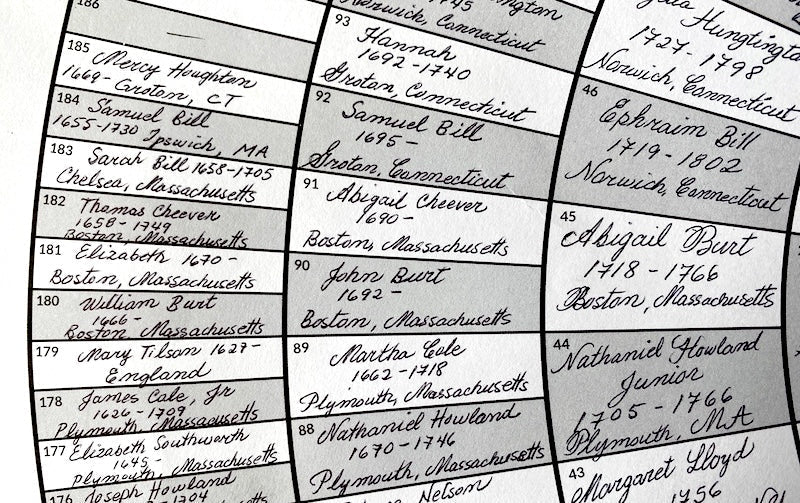 186
—
185 Mercy Houghton
1669- Groton, CT
184 Samuel Bill
1655-1730 Ipswich, MA
183 Sarah Bill 1658-1705
Chelsea, Massachusetts
182 Thomas Cheever
1658-1749
Boston, Massachusetts
181 Elizabeth 1670-
Boston, Massachusetts
180 William Burt
1666-
Boston, Massachusetts
179 Mary Tilson 1627-
England
178 James Cole, Jr
1626-1709
Plymouth, Massachusetts
177 Elizabeth Southworth
1645-
Plymouth, Massachusetts
176 Joseph Howland
1704
Norwich, Connecticut
93 Hannah
1692-1740
Groton, Connecticut
92 Samuel Bill
1695-
Groton, Connecticut
91 Abigail Cheever
1690-
Boston, Massachusetts
90 John Burt
1692-
Boston, Massachusetts
89 Martha Cole
1662-1718
Plymouth, Massachusetts
88 Nathaniel Howland
1670-1746
Plymouth, Massachusetts
Nelson
1727-1798
Norwich, Connecticut
46 Ephraim Bill
1719-1802
Norwich, Connecticut
45 Abigail Burt
1718-1766
Boston, Massachusetts
44 Nathaniel Howland
Junior
1705-1766
Plymouth, MA
43 Margaret Lloyd
1756